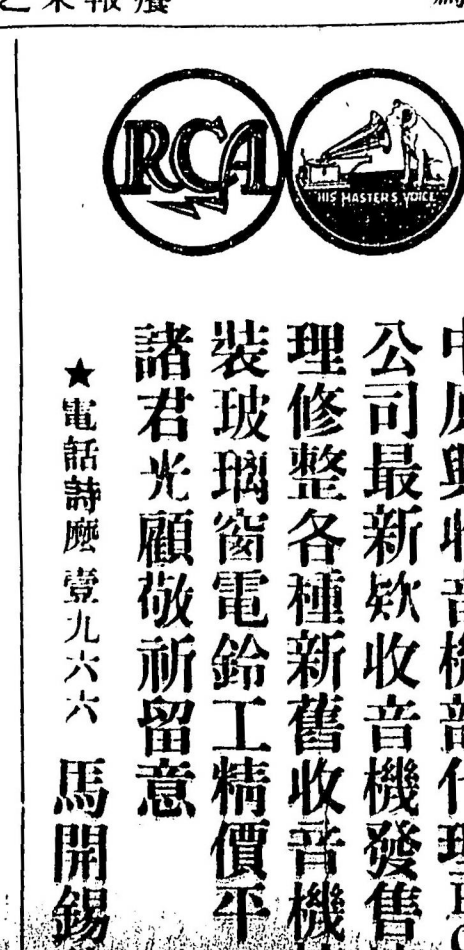 RCA
HIS MASTER'S VOICE
收音機部代理
公司最新欵收音機發售
理修整各種新舊收音機
裝玻璃窗電鈴工精價平
諸君光顧敬祈留意
★電話詩麼壹九六六 馬開錫